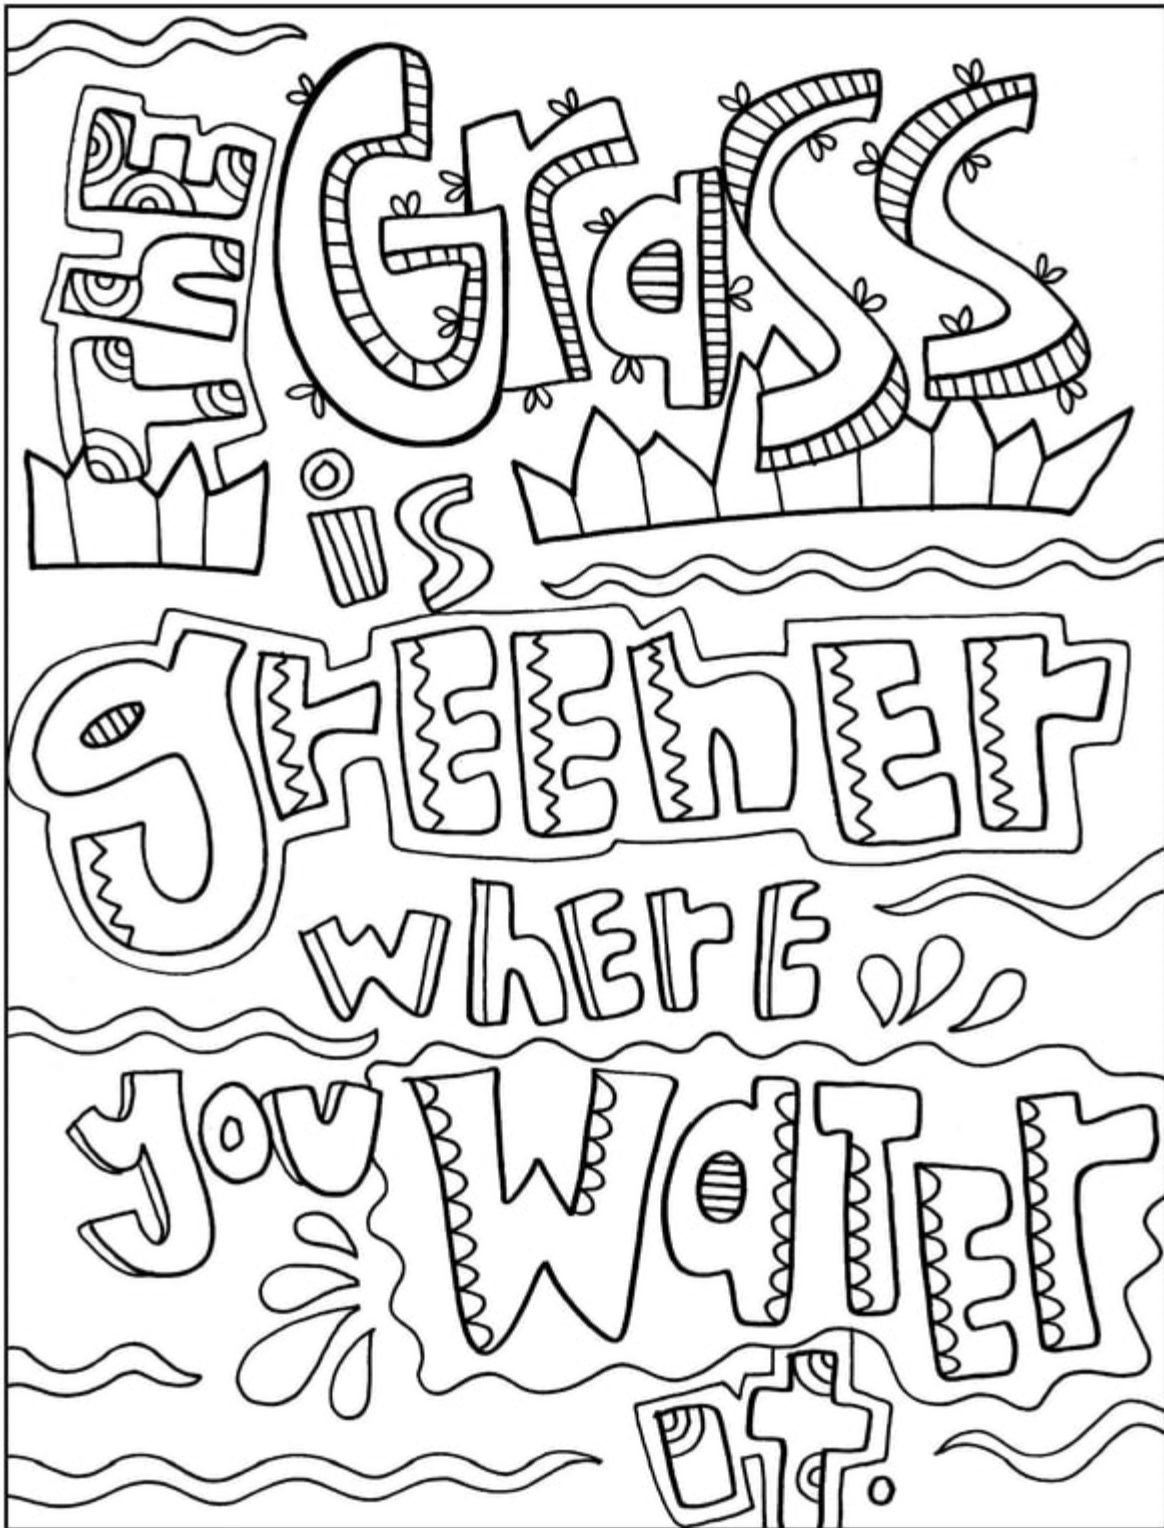 ThE
Grass
is
grEEnEr
whErE
you WaTEr
it.